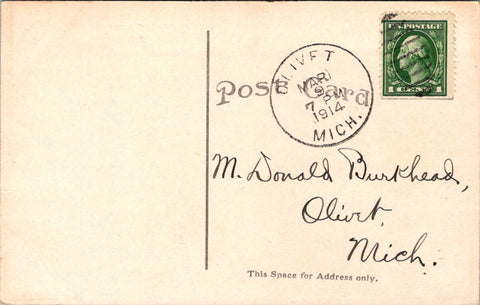 U.S. POSTAGE
1 CENTS 1
OLIVET
MAR
9
7 PM
1914
MICH.
Post Card
M. Donald Burkhead,
Olivet,
Mich.
This Space for Address only.